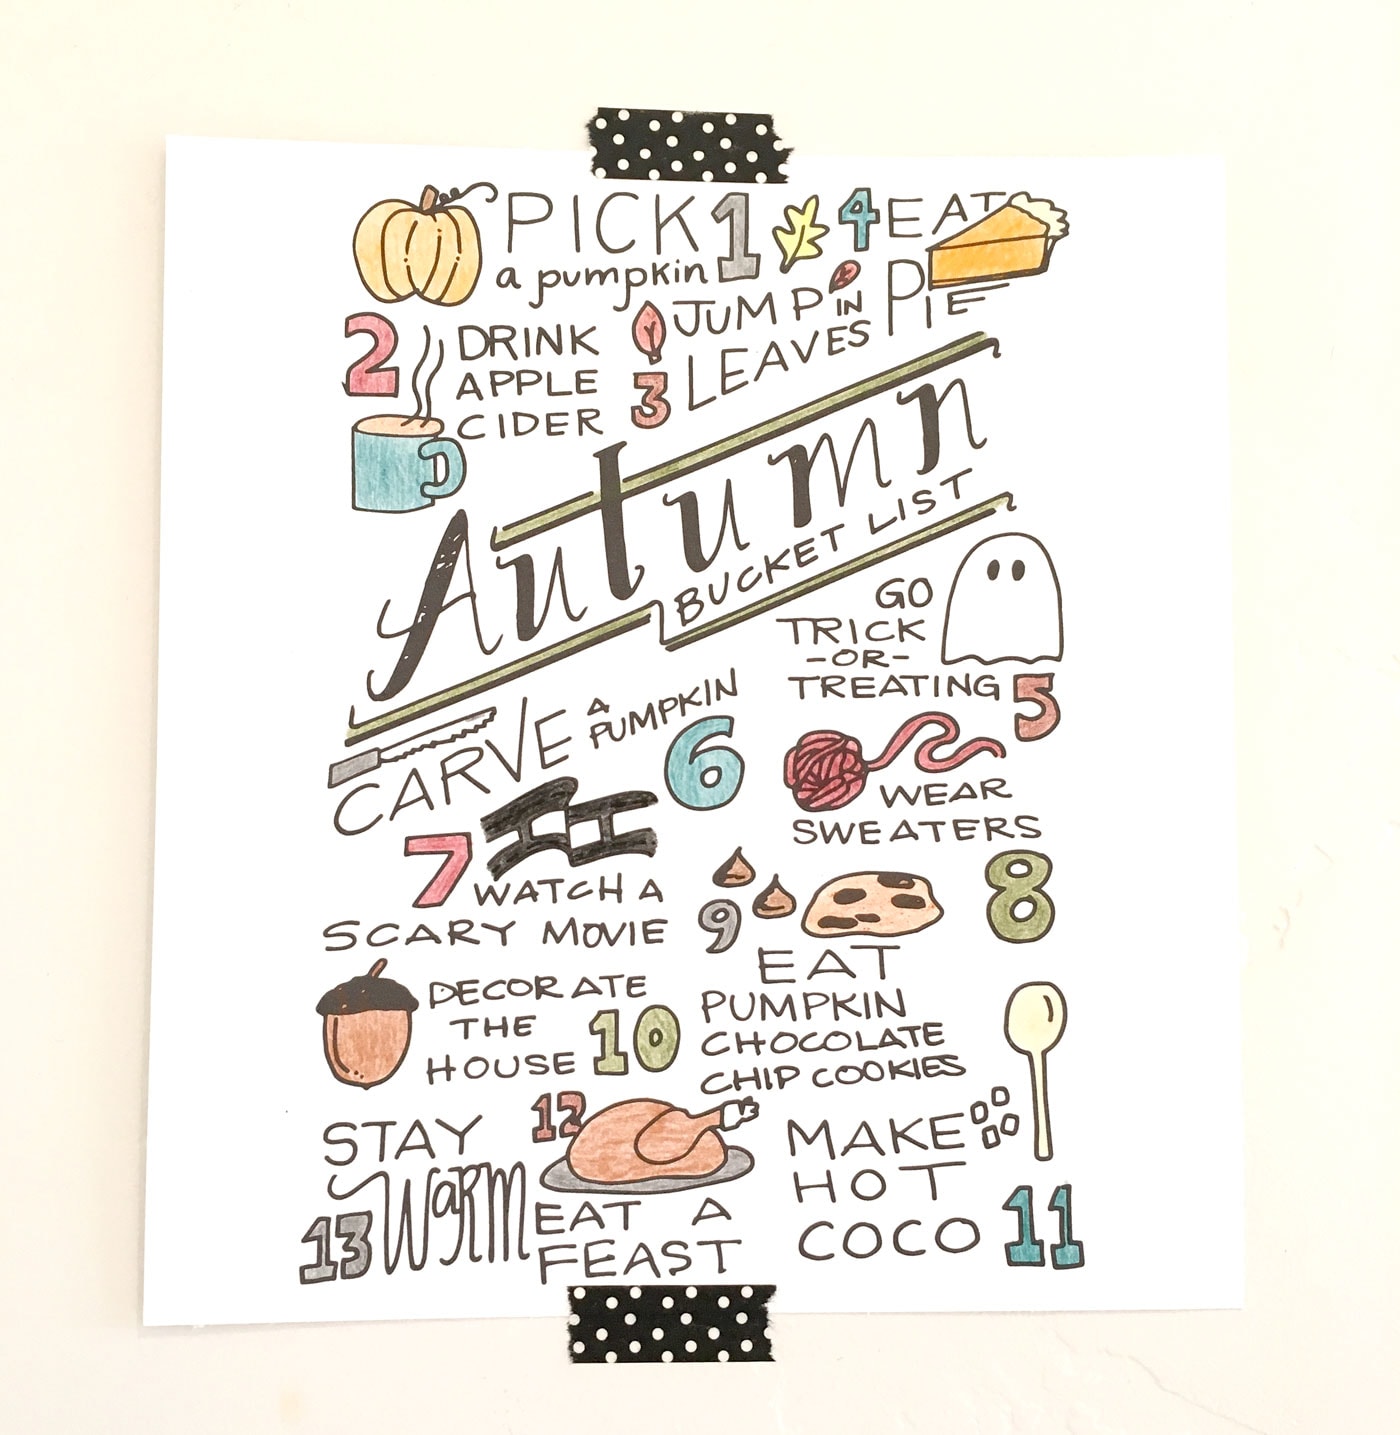 PICK 1
a pumpkin
4 EAT
PIE
2 DRINK
APPLE
CIDER
JUMP IN
3 LEAVES
Autumn
BUCKET LIST
GO
TRICK
-OR-
TREATING 5
CARVE A
PUMPKIN
6
WEAR
SWEATERS
8
7
WATCH A
SCARY MOVIE
9
EAT
PUMPKIN
CHOCOLATE
CHIP COOKIES
DECORATE
THE
HOUSE 10
STAY
WARM
13
12
EAT A
FEAST
MAKE
HOT
COCO 11